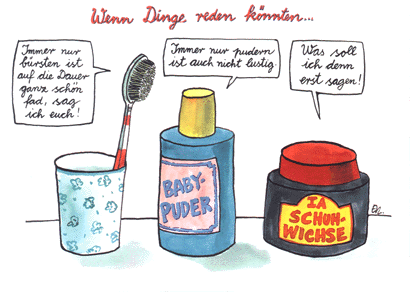 Wenn Dinge reden könnten...
Immer nur
bürsten ist
auf die Dauer
ganz schön
fad, sag
ich euch!
Immer nur pudern
ist auch nicht lustig.
Was soll
ich denn
erst sagen!
BABY-
PUDER
IA
SCHUH-
WICHSE